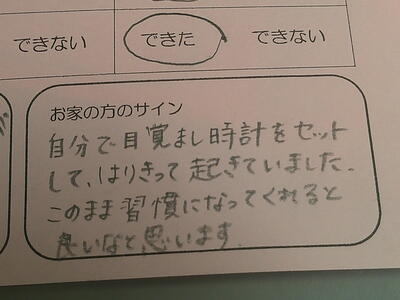 できない できた できない
お家の方のサイン
自分で目覚まし時計をセット
して、はりきって起きていました。
このまま習慣になってくれると
良いなと思います。